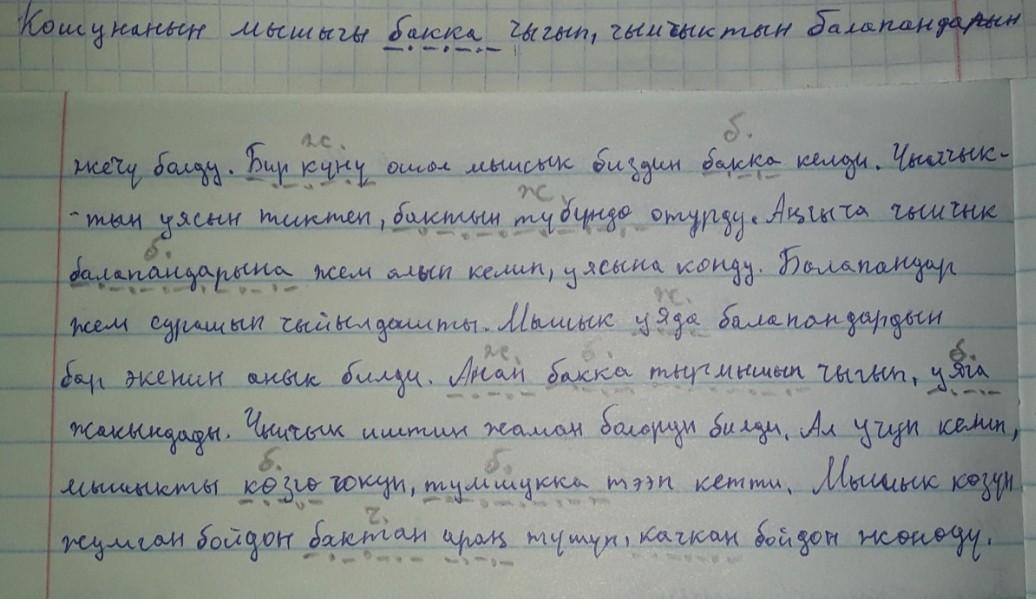 Кошунанын мышыгы бакка чыгып, чымчыктын балапандарын
ж.                                б.
жечү болду. Бир күнү ошол мышык биздин бакка келди. Чымчык-
ж.
-тын уясын тиктеп, бактын түбүндө отурду. Аңгыча чымчык
б.
балапандарына жем алып келип, уясына конду. Балапандар
ж.
жем сурашып чыйылдашты. Мышык уяда балапандардын
ж. б. б.
бар экенин анык билди. Анан бакка тырмышып чыгып, уяга
жакындады. Чымчык иштин жаман болорун билди. Ал учуп келип,
б. б.
мышыкты көзгө чокуп, тумшукка тээп кетти. Мышык көзүн
ч.
жумган бойдон бактан араң түшүп, качкан бойдон жөнөдү.